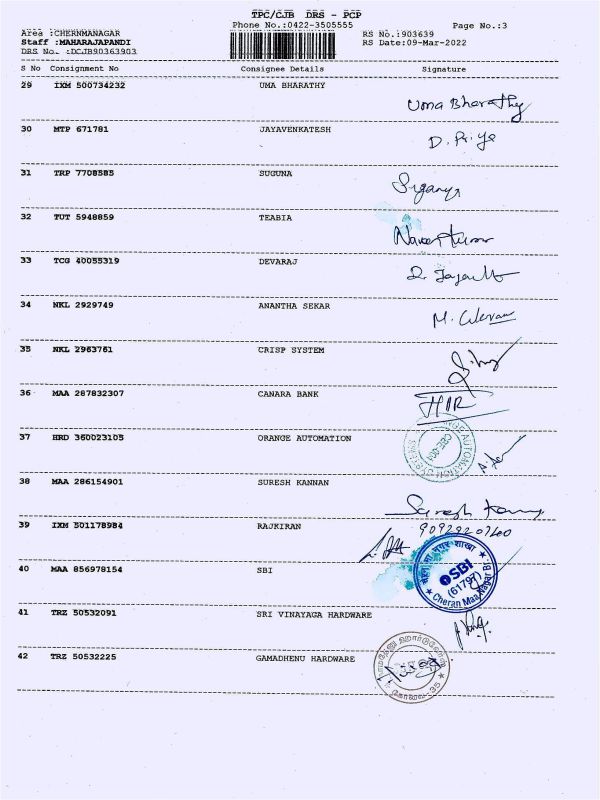 TPC/CJB DRS - PCP
Phone No.:0422-3505555
Page No.:3
Area :CHERNMANAGAR
RS No.:903639
Staff :MAHARAJAPANDI
RS Date:09-Mar-2022
DRS No. :DCJB90363903
S No Consignment No Consignee Details Signature
29 IXM 500734232 UMA BHARATHY
Uma Bharathy
30 MTP 671781 JAYAVENKATESH
D. Priya
31 TRP 7708585 SUGUNA
32 TUT 5948859 TEABIA
Naveen Kumar
33 TCG 40055319 DEVARAJ
34 NKL 2929749 ANANTHA SEKAR
35 NKL 2963761 CRISP SYSTEM
36 MAA 287832307 CANARA BANK
37 HRD 360023105 ORANGE AUTOMATION
ORANGE AUTOMATION
CBE
38 MAA 286154901 SURESH KANNAN
39 IXM 501178984 RAJKIRAN
40 MAA 856978154 SBI
नगर शाखा
SBI
(61797)
Cheran Maa Nagar Br
41 TRZ 50532091 SRI VINAYAGA HARDWARE
42 TRZ 50532225 GAMADHENU HARDWARE